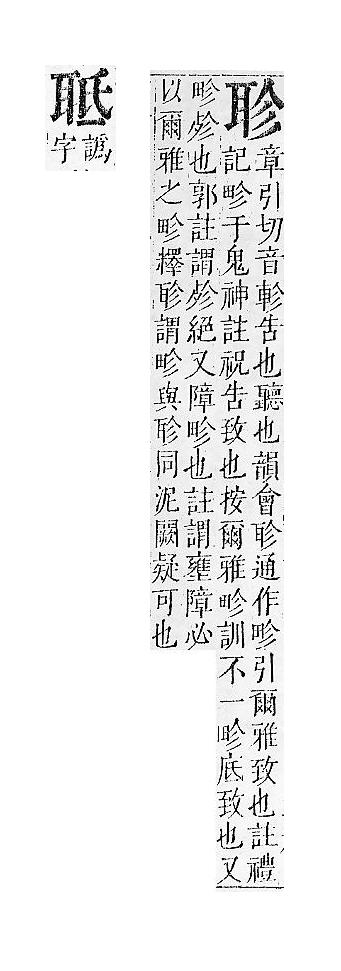 聄
章引切音軫告也聽也韻會聄通作畛引爾雅致也註禮
記畛于鬼神註祝告致也按爾雅畛訓不一畛底致也又
畛殄也郭註謂殄絕又障畛也註謂壅障必
以爾雅之畛釋聄謂畛與聄同泥闕疑可也
䎳
譌
字